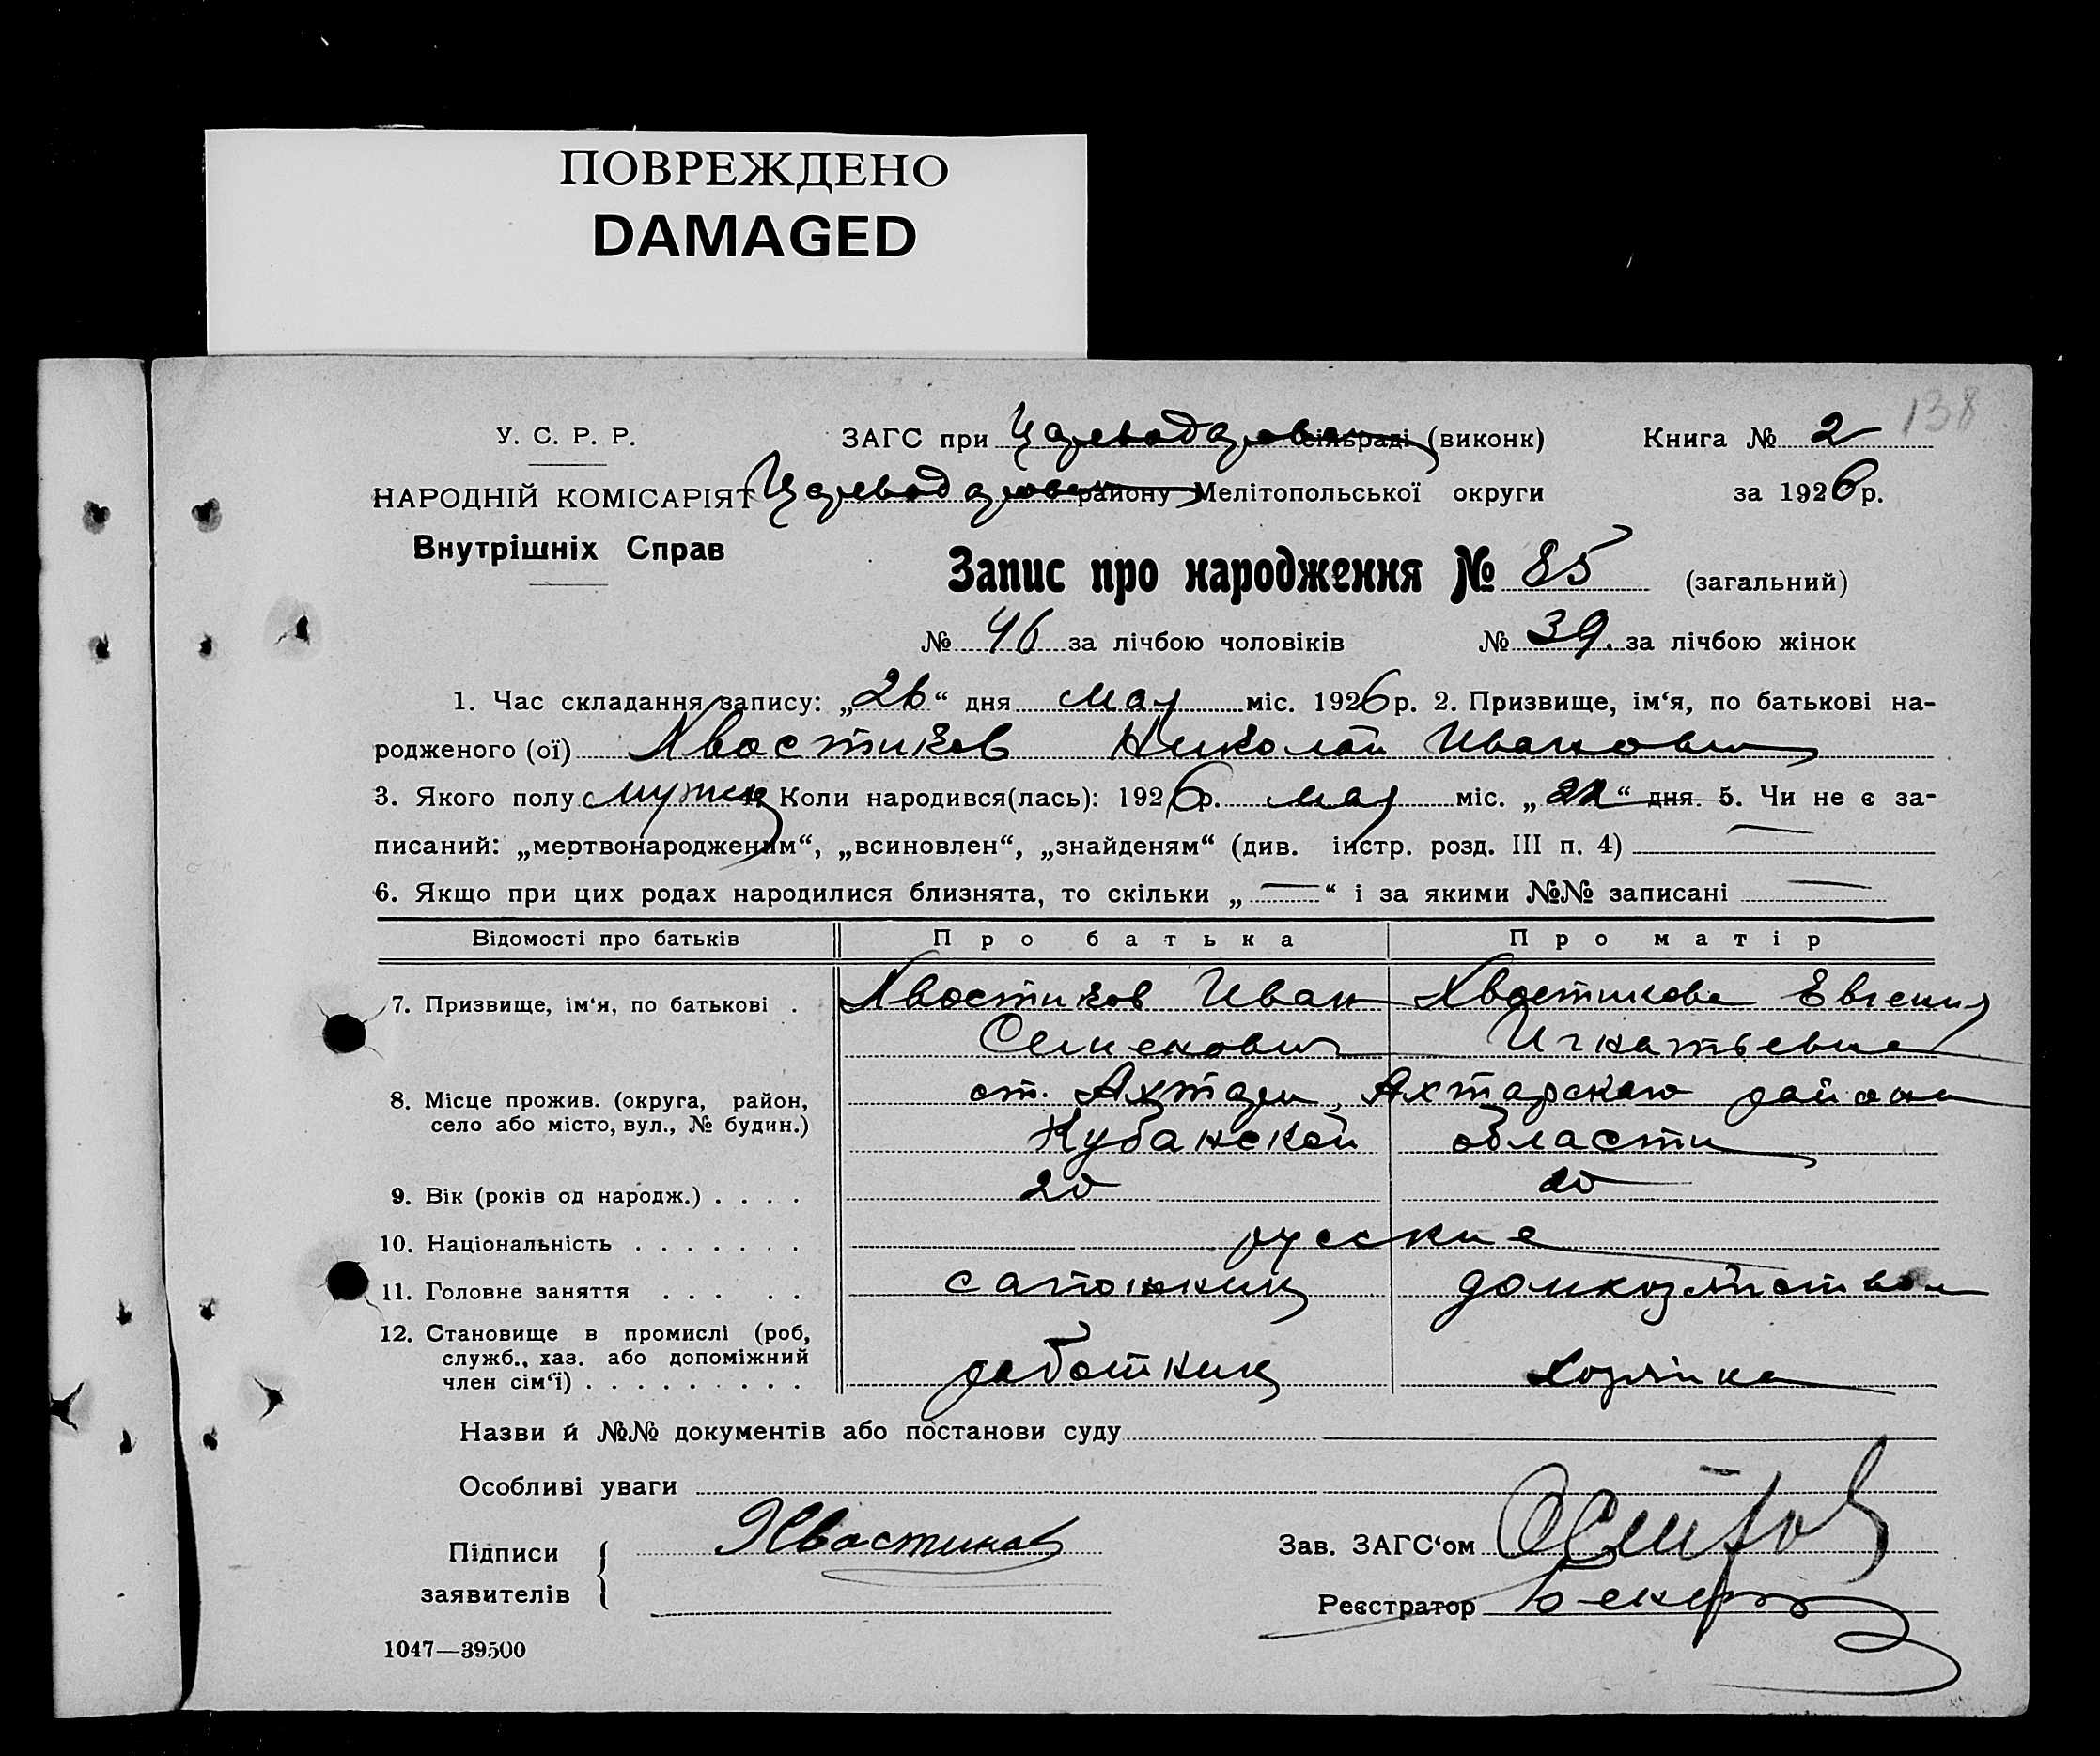 ПОВРЕЖДЕНО
DAMAGED
138
У. С. Р. Р. ЗАГС при Цареводаровск сільраді (виконк) Книга № 2
НАРОДНІЙ КОМІСАРІЯТ Цареводаровск району Мелітопольської округи за 1926 р.
Внутрішніх Справ
Запис про народження № 85 (загальний)
№ 46 за лічбою чоловіків № 39. за лічбою жінок
1. Час складання запису: „26“ дня мая міс. 1926 р. 2. Призвище, ім‘я, по батькові на-
родженого (ої) Хвостиков Николай Иванович
3. Якого полу мужск Коли народився(лась): 1926 р. мая міс. „22“ дня. 5. Чи не є за-
писаний: „мертвонародженим“, „всиновлен“, „знайденям“ (див. інстр. розд. III п. 4) —
6. Якщо при цих родах народилися близнята, то скільки „—“ і за якими №№ записані —
Відомості про батьків Про батька Про матір
7. Призвище, ім‘я, по батькові . Хвостиков Иван Хвостикова Евгения
Семенович Игнатьевна
8. Місце прожив. (округа, район, ст. Ахтари, Ахтарского района
село або місто, вул., № будин.) Кубанской области
9. Вік (років од народж.) . . . . 20 20
10. Національність . . . . . . . русские
11. Головне заняття . . . . . сапожник домхозяйством
12. Становище в промислі (роб,
служб., хаз. або допоміжний работник хозяйка
член сім‘ї) . . . . . . . . .
Назви й №№ документів або постанови суду
Особливі уваги
Підписи Хвостиков Зав. ЗАГС‘ом
заявителів Реєстратор Бекер
1047—39500